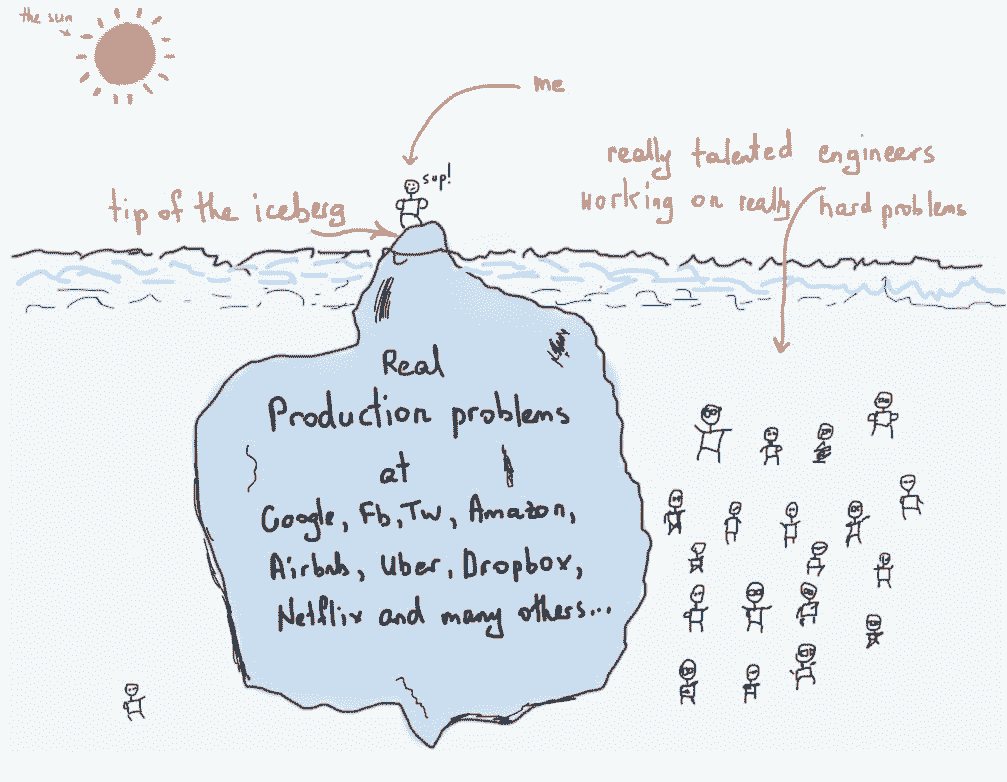 the sun
me
sup!
tip of the iceberg
really talented engineers
working on really hard problems
Real
Production problems
at
Google, Fb, Tw, Amazon,
Airbnb, Uber, Dropbox,
Netflix and many others...